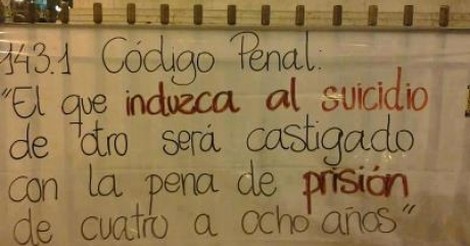 143.1 Código Penal:
"El que induzca al suicidio
de otro será castigado
con la pena de prisión
de cuatro a ocho años"